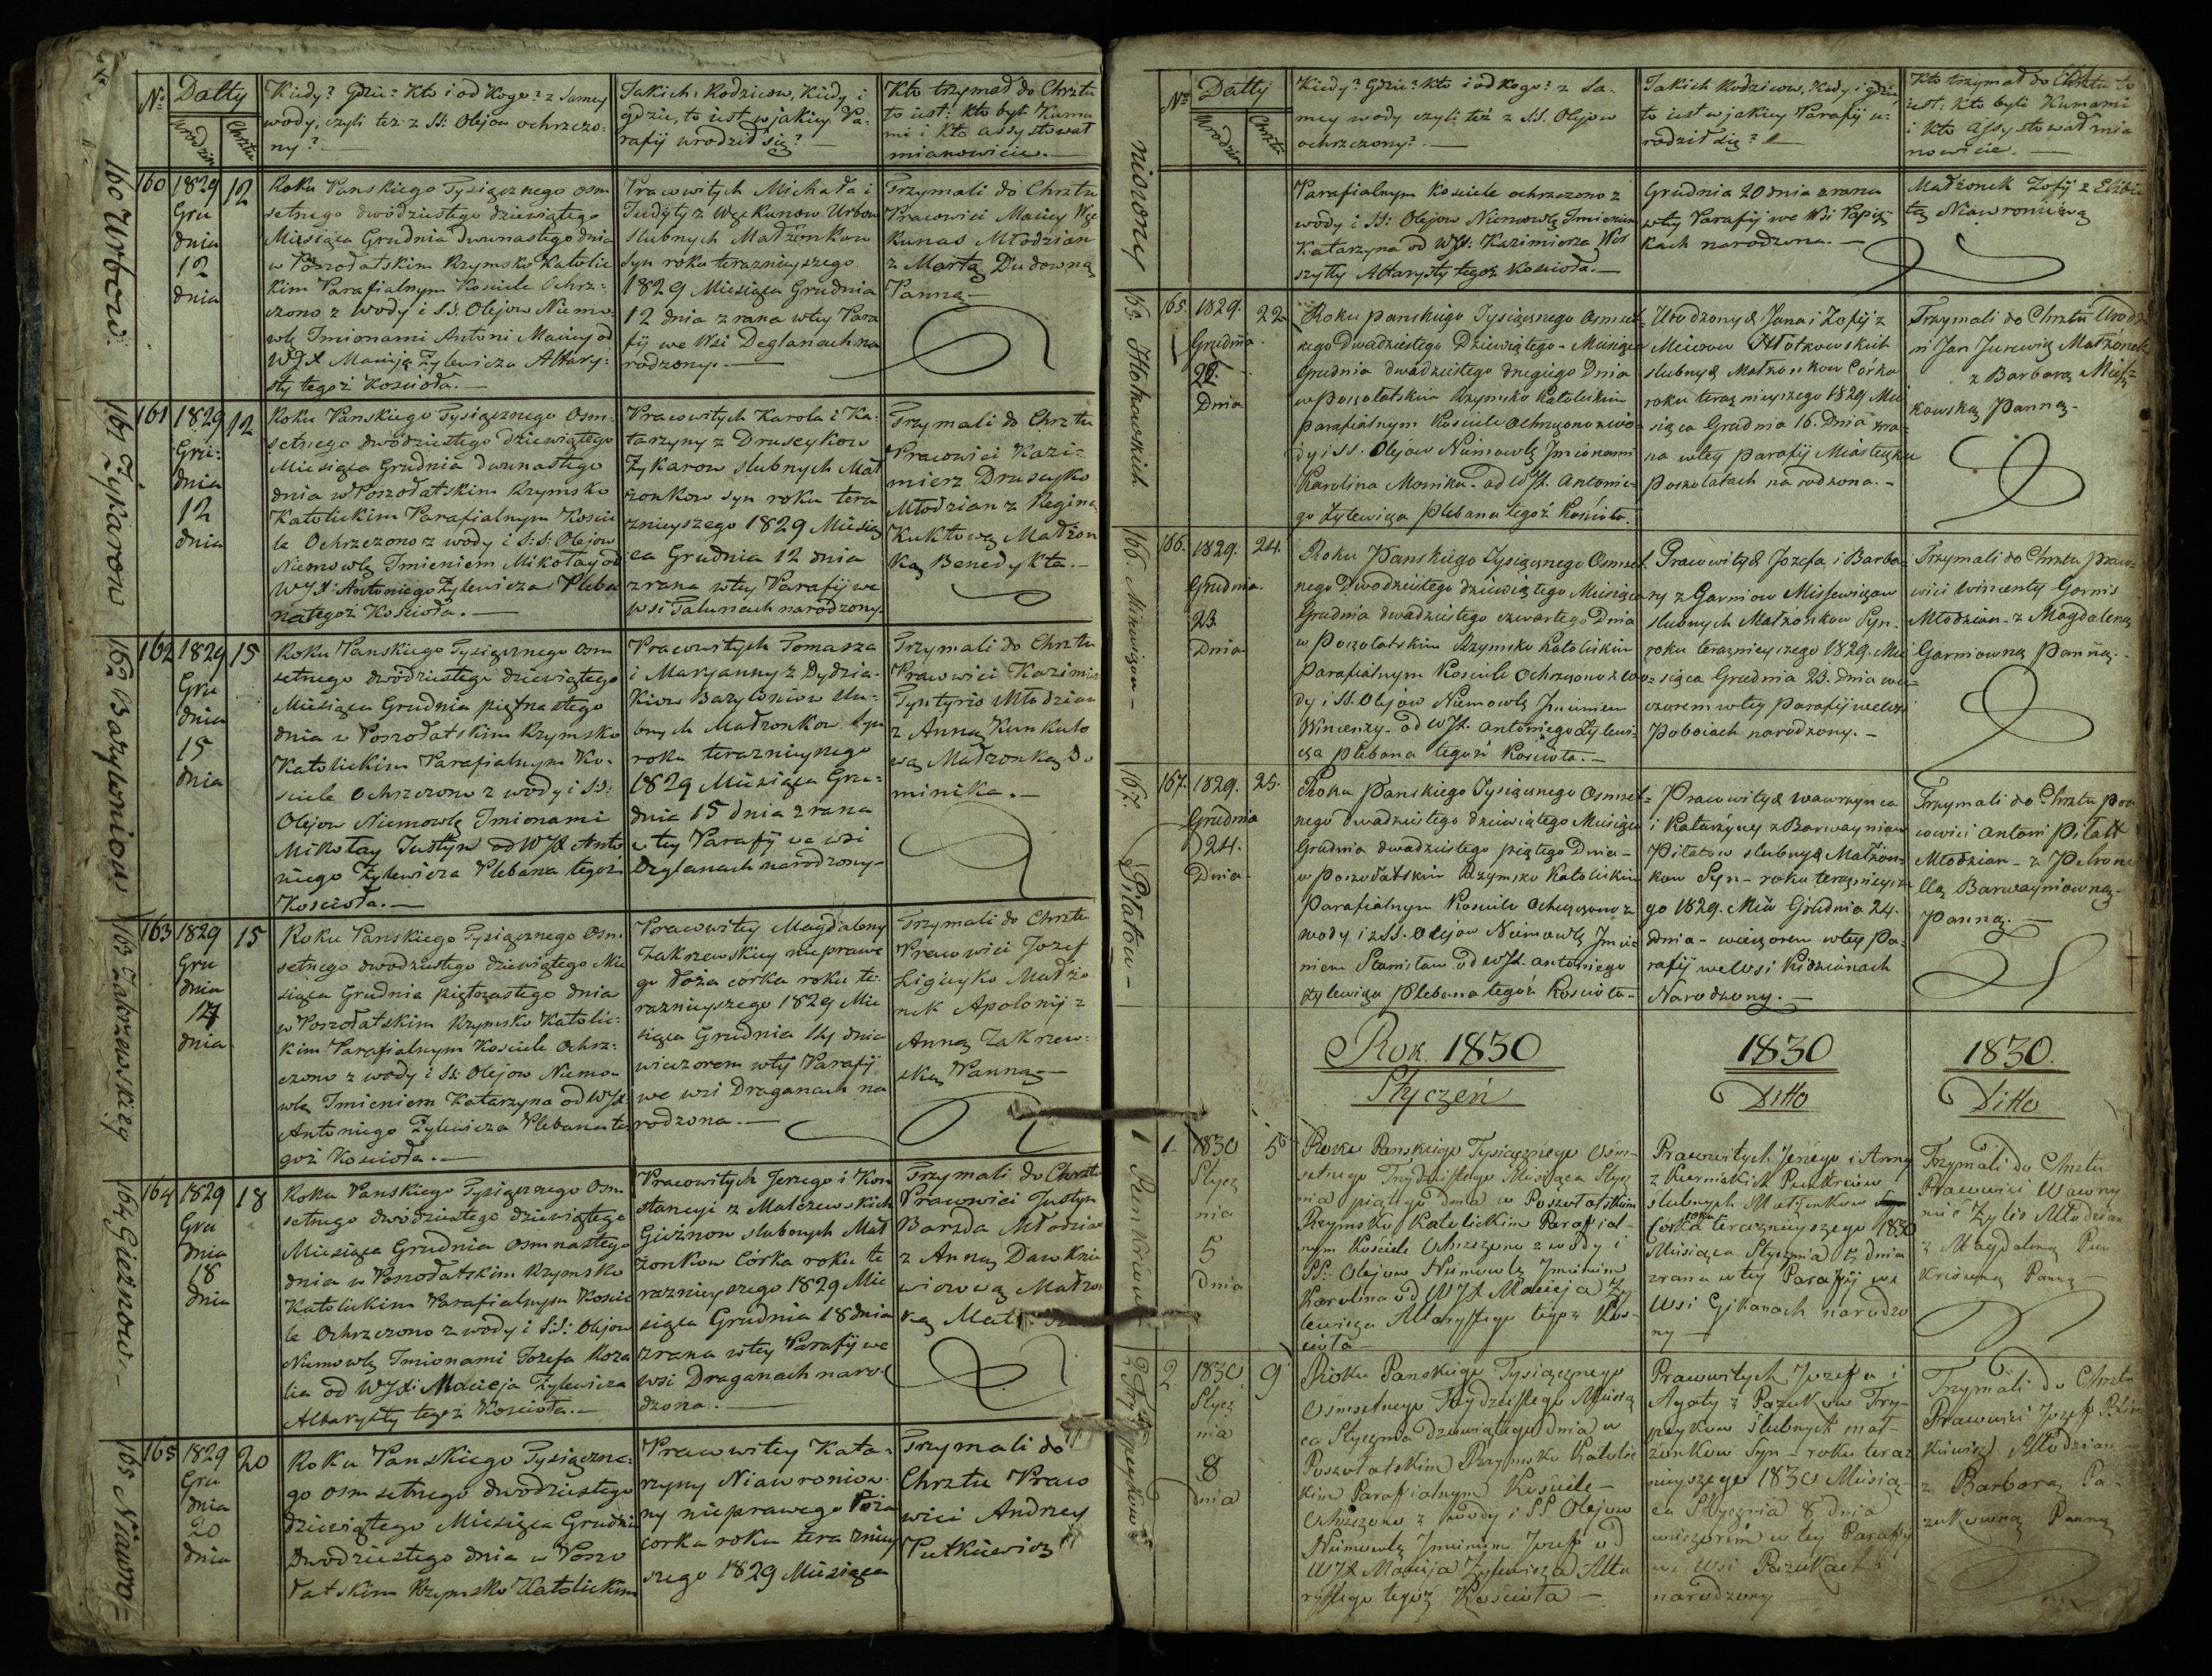 No
Datty
Urodzin
Chrztu
Kiedy? Gdzie? Kto i od Kogo? z Samey
wody, czyli też z SS: Olejow ochrzczo-
ny? —
Jakich Rodzicow, Kiedy i
gdzie, to iest w jakiey Pa-
rafij urodził się? —
Kto trzymał do Chrztu
to iest: kto był Kuma
mi i kto assystował
mianowicie. —
160 Urbow.
160
1829
Gru
dnia
12
dnia
12
Roku Panskiego Tysiącznego osm
setnego dwódziestego dziewiątego
Miesiąca Grudnia dwunastego dnia
w Poszołatskim Rzymsko Katolic
kim Parafialnym Kosciele Ochrz-
czono z wody i S.S. Olejow Niemo-
wlę Imionami Antoni Maciey od
WJX Macieja Żylewicza Altary-
sty tegoż Kościoła. —
Pracowitych Michała i
Judyty z Węckunow Urbow
slubnych Małżonkow
syn roku teraznieyszego
1829 Miesiąca Grudnia
12 dnia z rana wtey Para
fij we Wsi Deglanach na
rodzony. —
Trzymali do Chrztu
Pracowici Maciey Węc
kunas Młodzian
z Martą Dudowną
Panną —
161 Zykarow
161
1829
Gru-
dnia
12
dnia
12
Roku Panskiego Tysiącznego Osm-
setnego dwódziestego dziewiątego
Miesiąca Grudnia dwunastego
dnia w Poszołatskim Rzymsko
Katolickim Parafialnym Koscie
le Ochrzczono z wody i S:S: Olejow
Niemowlę Imieniem Mikołay od
WJX: Antoniego Żylewicza Pleba
na tegoż Kościoła. —
Pracowitych Karola i Ka-
tarzyny z Druseykow
Zykarow slubnych Mał
żonkow syn roku tera
znieyszego 1829 Miesią
ca Grudnia 12 dnia
z rana wtey Parafij we
wsi Paluncach narodzony.
Trzymali do Chrztu
Pracowici Kazi-
mierz Druseyko
Młodzian z Reginą
Kuktową Małżon
ką Benedykta. —
162 Bazyloniow
162
1829
Gru
dnia
15
dnia
15
Roku Panskiego Tysiącznego osm
setnego dwódziestego dziewiątego
Miesiąca Grudnia piętnastego
dnia w Poszołatskim Rzymsko
Katolickim Parafialnym Ko-
sciele Ochrzczono z wody i SS:
Olejow Niemowlę Imionami
Mikołay Justyn od WJX Anto
niego Żylewicza Plebana tegoż
Kościoła. —
Pracowitych Tomasza
i Maryanny z Dydzia-
kow Bazyloniow slu-
bnych Małżonkow syn
roku teraznieyszego
1829 Miesiąca Gru-
dnia 15 dnia z rana
w tey Parafij we wsi
Deglanach narodzony —
Trzymali do Chrztu
Pracowici Kazimierz
Tyntyris Młodzian
z Anną Kunkulo
wą Małżonką Do
minika. —
163 Zakrzewskiey
163
1829
Gru
dnia
14
dnia
15
Roku Panskiego Tysiącznego Osm
setnego dwodziestego dziewiątego Mie
siąca Grudnia piętnastego dnia
w Poszołatskim Rzymsko Katolic-
kim Parafialnym Kosciele Ochrz-
czono z wody i SS: Olejow Niemo-
wlę Imieniem Katarzyna od WJX
Antoniego Żylewicza Plebana te
goż Kościoła. —
Pracowitey Magdaleny
Zakrzewskiey nieprawe
go łoża corka roku te-
raznieyszego 1829 Mie
siąca Grudnia 14 dnia
wieczorem wtey Parafij
we wsi Draganach na
rodzona. —
Trzymali do Chrztu
Pracowici Jozef
Ligieyko Małżo
nek Apolonij z
Anną Zakrzew-
ską Panną —
164 Gieżnow —
164
1829
Gru
dnia
18
dnia
18
Roku Panskiego Tysiącznego Osm
setnego dwódziestego dziewiątego
Miesiąca Grudnia osmnastego
dnia w Poszołatskim Rzymsko
Katolickim Parafialnym Koscie
le Ochrzczono z wody i S:S: Olejow
Niemowlę Imionami Jozefa Roza
lia od WJX: Macieja Żylewicza
Altarysty tegoż Kościoła. —
Pracowitych Jerzego i Kon
stancyi z Malczewskich
Gieżnow slubnych Mał
żonkow Corka roku te
raznieyszego 1829 Mie
siąca Grudnia 18 dnia
z rana wtey Parafij we
wsi Draganach naro
dzona. —
Trzymali do Chrztu
Pracowici Justyn
Barzda Młodzian
z Anną Dawknia
wiorową Małżon
ką
165 Niawro=
165
1829
Gru
dnia
20
dnia
20
Roku Panskiego Tysiączne-
go osm setnego dwodziestego
dziewiątego Miesiąca Grudni
Dwodziestego dnia w Poszo
łatskim Rzymsko Katolickim
Pracowitey Kata-
rzyny Niawroniow-
ny nieprawego łoża
corka roku tera zniey
szego 1829 Miesiąca
Trzymali do
Chrztu Praco
wici Andrzey
Putkiewicz
No
Datty
Urodzin
Chrztu
Kiedy? Gdzie? Kto i od kogo? z Sa-
mey wody czyli też z S.S. Olejow
ochrzczony? —
Jakich Rodzicow, Kiedy i gdzie,
to iest w jakiey Parafij u-
rodził się? —
Kto trzymał do Chrztu to
iest: kto byli Kumami
i kto assystował mia
nowicie. —
niowney
Parafialnym Kosciele ochrzczono z
wody i SS: Olejow Niemowlę Imieniem
Katarzyna od WJX: Kazimierza Woj
szytły Altarysty tegoż Kościoła. —
Grudnia 20 dnia z rana
wtey Parafij we Wsi Papisz
kach narodzona. —
Małżonek Zofij z Elżbie
tą Niawroniówną
165. Hłotkowskich
165.
1829.
Grudnia
22.
Dnia
22
Roku Panskiego Tysiącznego Osmset-
nego Dwadziestego Dziewiątego - Miesiąca
Grudnia dwadziestego drugiego Dnia
w Poszołatskim Rzymsko Katolickim
Parafialnym Kosciele Ochrzczono z wo-
dy i SS. Olejow Niemowlę Imionami
Karolina Monika - od WJX. Antonie-
go Żylewicza Plebana tegoż Kościoła.
Urodzonych Jana i Zofij z
Hłotkowskich
slubnych Małżonkow Córka
roku teraznieyszego 1829 Mie
siąca Grudnia 16. Dnia zra-
na wtey Parafij Miasteczku
Poszolatach narodzona. —
Trzymali do Chrztu Urodze
ni Jan Jurewicz Małżonek
z Barbarą
kowską Panną —
166.
166.
1829.
Grudnia.
23.
Dnia
24.
Roku Panskiego Tysiącznego Osmset-
nego Dwodziestego dziewiątego Miesiąca
Grudnia dwadziestego czwartego Dnia
w Poszołatskim Rzymsko Katolickim
Parafialnym Kosciele Ochrzczono z wo-
dy i SS. Olejow Niemowlę Imieniem
Wincenty - od WJX. Antoniego Żylewi-
cza Plebana tegoż Kościoła. —
Pracowitych Jozefa i Barba
ry z Garniow Missewiczow
slubnych Małżonkow Syn-
roku teraznieyszego 1829. Mie
siąca Grudnia 23. dnia wie-
czorem wtey Parafij we wsi
Poboiach narodzony. —
Trzymali do Chrztu Praco-
wici Wincenty Garnis
Młodzian - z Magdaleną
Garniowną Panną. —
167. Piłatow —
167.
1829.
Grudnia
24.
Dnia
25.
Roku Panskiego Tysiącznego Osmset-
nego dwadziestego dziewiątego Miesiąca
Grudnia dwadziestego piątego Dnia —
w Poszołatskim Rzymsko Katolickim
Parafialnym Kosciele Ochrzczono z
wody i z SS. Olejow Niemowlę Imie
niem Stanisław od WJX. Antoniego
Żylewicza Plebana tegoż Kościoła —
Pracowitych Wawrzynca
i Katarzyny z Barwayniow
Piłatow slubnych Małżon-
kow Syn — roku teraznieysze
go 1829. Mca Grudnia 24.
dnia - wieczorem wtey Pa-
rafij we Wsi Kidzianach
Narodzony. —
Trzymali do Chrztu Pra
cowici Antoni Piłatt
Młodzian — z Petrone
llą Barwayniowną —
Panną. —
Rok 1830
Styczeń
1830
Ditto
1830.
Ditto
1 Punkriow
1
1830
Stycz
nia
5
dnia
5
Roku Panskiego Tysiącznego Ośm-
setnego Trzydziestego Miesiąca Stycz
nia piątego dnia w Poszołatskim
Rzymsko Katolickim Parafial-
nym Kościele Ochrzczono z wody i
SS: Olejow Niemowlę Imieniem
Karolina od WJX Macieja Ży
lewicza Altarystego tegoż Koś-
cioła —
Pracowitych Jerzego i Anny
z Kurnickich Punkriow
slubnych Małżonkow
Corka roku teraznieyszego 1830
Miesiąca Stycznia 5 dnia
zrana wtey Parafij we
Wsi Gikanach narodzo
ny —
Trzymali do Chrztu
Pracowici Wawrzy
niec Żylis Młodzian
z Magdaleną Pun
kriówną Panną —
2 Trypeykow
2
1830
Stycz
nia
8
dnia
9
Roku Panskiego Tysiącznego
Osmsetnego Trzydziestego Miesią
ca Stycznia Dziewiątego dnia w
Poszołatskim Rzymsko Katolic
kim Parafialnym Kościele —
Ochrzczono z wody i SS Olejow
Niemowlę Imieniem Jozef od
WJX Macieja Żylewicza Alta
rystego tegoż Kościoła —
Pracowitych Jozefa i
Agaty z Pazukow Try-
peykow Ślubnych mał-
żonkow Syn — roku teraz
nieyszego 1830 Miesią
ca Stycznia 8 dnia
wieczorem w tey Parafij
we Wsi Pazukach
narodzony
Trzymali do Chrztu
Pracowici Jozef
Młodzian
z Barbarą Pa-
zukowną Panną